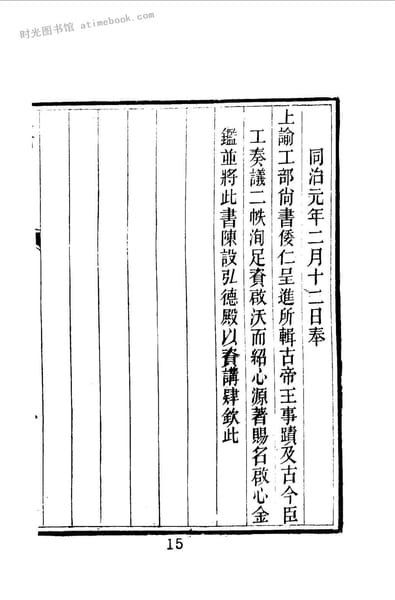 时光图书馆 atimebook.com
同治元年二月十二日奉
上諭工部尙書倭仁呈進所輯古帝王事蹟及古今臣
工奏議二帙洵足資啟沃而紹心源著賜名啟心金
鑑並將此書陳設弘德殿以資講肄欽此
15